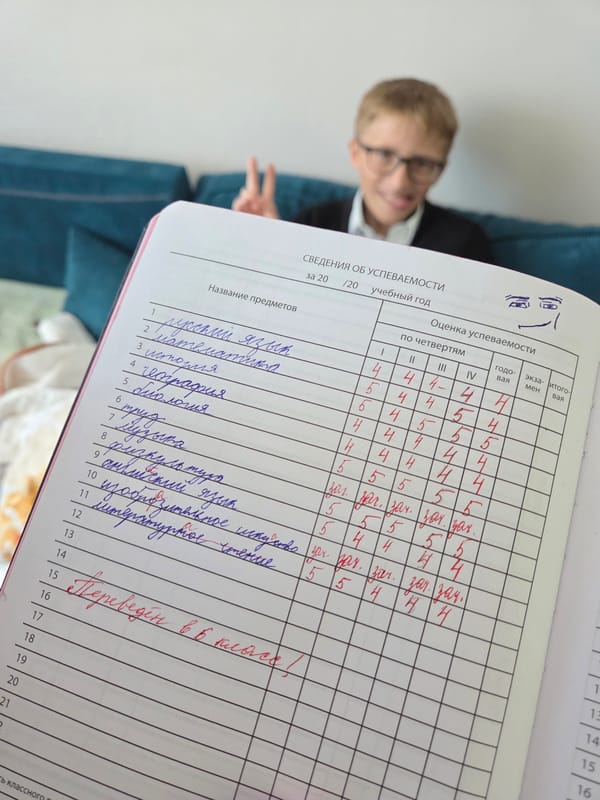 СВЕДЕНИЯ ОБ УСПЕВАЕМОСТИ
за 20 /20 учебный год
Название предметов
Оценка успеваемости
по четвертям
I II III IV годо- вая экза- мен итого- вая
1 русский язык 4 4 4- 4 4
2 математика 5 4 4 5 5
3 история 5 4 5 5 5
4 география 4 4 4 4 4
5 биология 4 4 4 4 4
6 труд 5 5 5 5 5
7 музыка зач. зач. зач. зач. зач.
8 физкультура 5 5 5 5 5
9 английский язык 5 4 4 4 4
10 изобразительное искуство зач. зач. зач. зач. зач.
11 литературное чтение 5 5 4 4 4
12
13
14
15
16 Переведён в 6 класс!
17
18
19
20
21
13
14
15
16